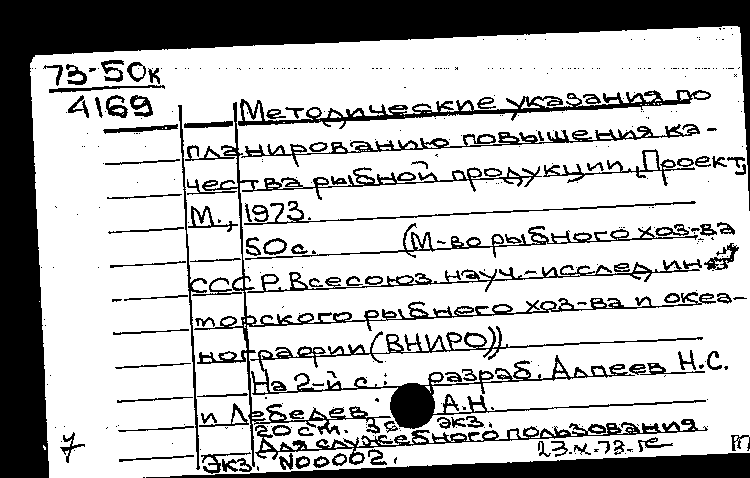 73-50к
4169
Методические указания по
планированию повышения ка-
чества рыбной продукции. Проект
М., 1973.
50с. (М-во рыбного хоз-ва
СССР. Всесоюз. науч.-исслед. ин-т
морского рыбного хоз-ва и океа-
нографии (ВНИРО)).
На 2-й с.: разраб. Алпеев Н.С.
и Лебедев А.Н.
20 см. экз.
Для служебного пользования.
Экз. N00002.